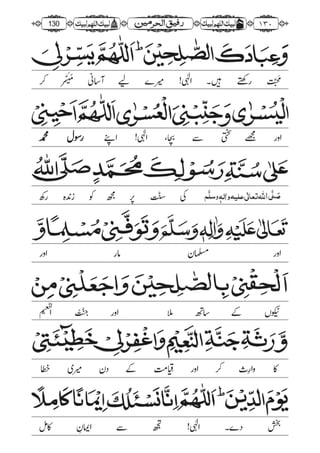 ۱۳۰ لبيك اللهم لبيك رفیق الحرمین لبيك اللهم لبيك 130
وَعِبَادَكَ الصّٰلِحِیْنَ ؕ اَللّٰهُمَّ یَسِّرْ لِیَ
محبت رکھتے ہیں۔ الٰہی! میرے لیے آسانی مُیَسَّر کر
الْیُسْرٰی وَجَنِّبْنِیَ الْعُسْرٰی اَللّٰهُمَّ اَحْیِنِیْ
اور مجھے سختی سے بچا، الٰہی! اپنے رسول محمد
عَلٰی سُنَّةِ رَسُوْلِكَ مُحَمَّدٍ صَلَّی اللّٰهُ
صلَّی اللہ تعالٰی علیہ واٰلہٖ وسلَّم کی سنّت پر مجھ کو زندہ رکھ
تَعَالٰی عَلَیْهِ وَاٰلِهٖ وَسَلَّمَ وَتَوَفَّنِیْ مُسْلِمًا وَّ
اور مسلمان مار اور
اَلْحِقْنِیْ بِالصّٰلِحِیْنَ وَاجْعَلْنِیْ مِنْ
نیکوں کے ساتھ ملا اور جنّت النعیم
وَّرَثَةِ جَنَّةِ النَّعِیْمِ وَاغْفِرْ لِیْ خَطِیْٓئَتِیْ
کا وارِث کر اور قیامت کے دن میری خطا
یَوْمَ الدِّیْنِ ؕ اَللّٰهُمَّ اِنَّا نَسْئَلُكَ اِیْمَانًا كَامِلًا
بخش دے۔ الٰہی! تجھ سے ایمانِ کامل